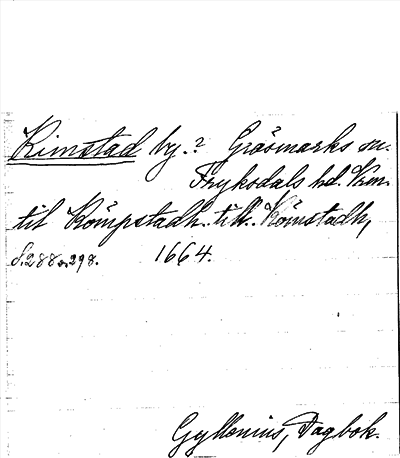 Kimstad by.? Gräsmarks sn.
Fryksdals hd. Vrm.
til Kömpstadh. till. Kömstadh,
S. 288 o. 298. 1664.
Gyllenius, Dagbok.